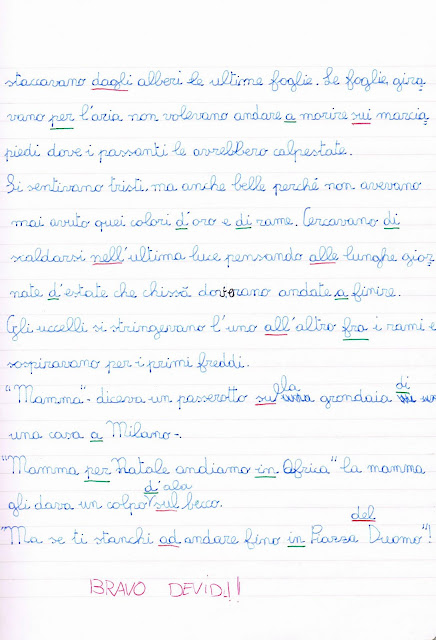 staccavano dagli alberi le ultime foglie. Le foglie gira
vano per l'aria non volevano andare a morire sui marcia
piedi dove i passanti le avrebbero calpestate.
Si sentivano tristi ma anche belle perché non avevano
mai avuto quei colori d'oro e di rame. Cercavano di
scaldarsi nell'ultima luce pensando alle lunghe gior
nate d'estate che chissà dov'erano andate a finire.
Gli uccelli si stringevano l'uno all'altro fra i rami e
sospiravano per i primi freddi.
"Mamma"- diceva un passerotto sulla grondaia di
una casa a Milano-.
"Mamma per Natale andiamo in Africa" la mamma
gli dava un colpo d'ala sul becco.
"Ma se ti stanchi ad andare fino in Piazza del Duomo"!
BRAVO DEVID!!